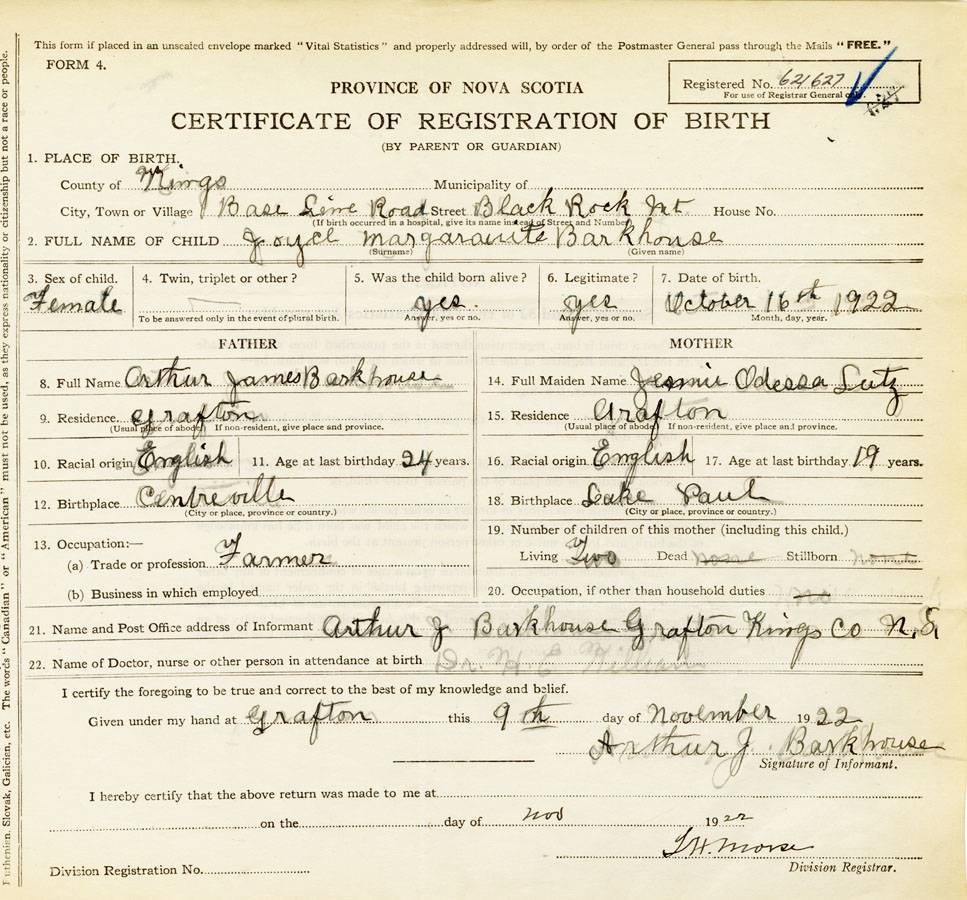 This form if placed in an unsealed envelope marked "Vital Statistics" and properly addressed will, by order of the Postmaster General pass through the Mails "FREE."
FORM 4.
Registered No. 621627
For use of Registrar General only.
PROVINCE OF NOVA SCOTIA
CERTIFICATE OF REGISTRATION OF BIRTH
(BY PARENT OR GUARDIAN)
1. PLACE OF BIRTH.
County of Kings Municipality of
City, Town or Village Base Line Road Street Black Rock Mt. House No.
(If birth occurred in a hospital, give its name instead of Street and Number)
2. FULL NAME OF CHILD Joyce Margarauite Barkhouse
(Surname) (Given name)
3. Sex of child. 4. Twin, triplet or other? 5. Was the child born alive? 6. Legitimate? 7. Date of birth.
Female yes. yes October 16th 1922
To be answered only in the event of plural birth. Answer, yes or no. Answer, yes or no. Month, day, year.
FATHER MOTHER
8. Full Name Arthur James Barkhouse 14. Full Maiden Name Jennie Odessa Lutz
9. Residence. Grafton 15. Residence Grafton
(Usual place of abode) If non-resident, give place and province. (Usual place of abode) If non-resident, give place and province.
10. Racial origin English 11. Age at last birthday 24 years. 16. Racial origin English 17. Age at last birthday 19 years.
12. Birthplace Centreville 18. Birthplace Lake Paul
(City or place, province or country.) (City or place, province or country.)
13. Occupation:— 19. Number of children of this mother (including this child.)
(a) Trade or profession Farmer Living Two Dead none Stillborn none
(b) Business in which employed 20. Occupation, if other than household duties no
21. Name and Post Office address of Informant Arthur J Barkhouse Grafton Kings Co N.S.
22. Name of Doctor, nurse or other person in attendance at birth Dr. H E
I certify the foregoing to be true and correct to the best of my knowledge and belief.
Given under my hand at Grafton this 9th day of November 1922
Arthur J. Barkhouse
Signature of Informant.
I hereby certify that the above return was made to me at
on the day of Nov 1922
Morse
Division Registrar.
Division Registration No.
Ruthenian, Slovak, Galician, etc. The words "Canadian" or "American" must not be used, as they express nationality or citizenship but not a race or people.